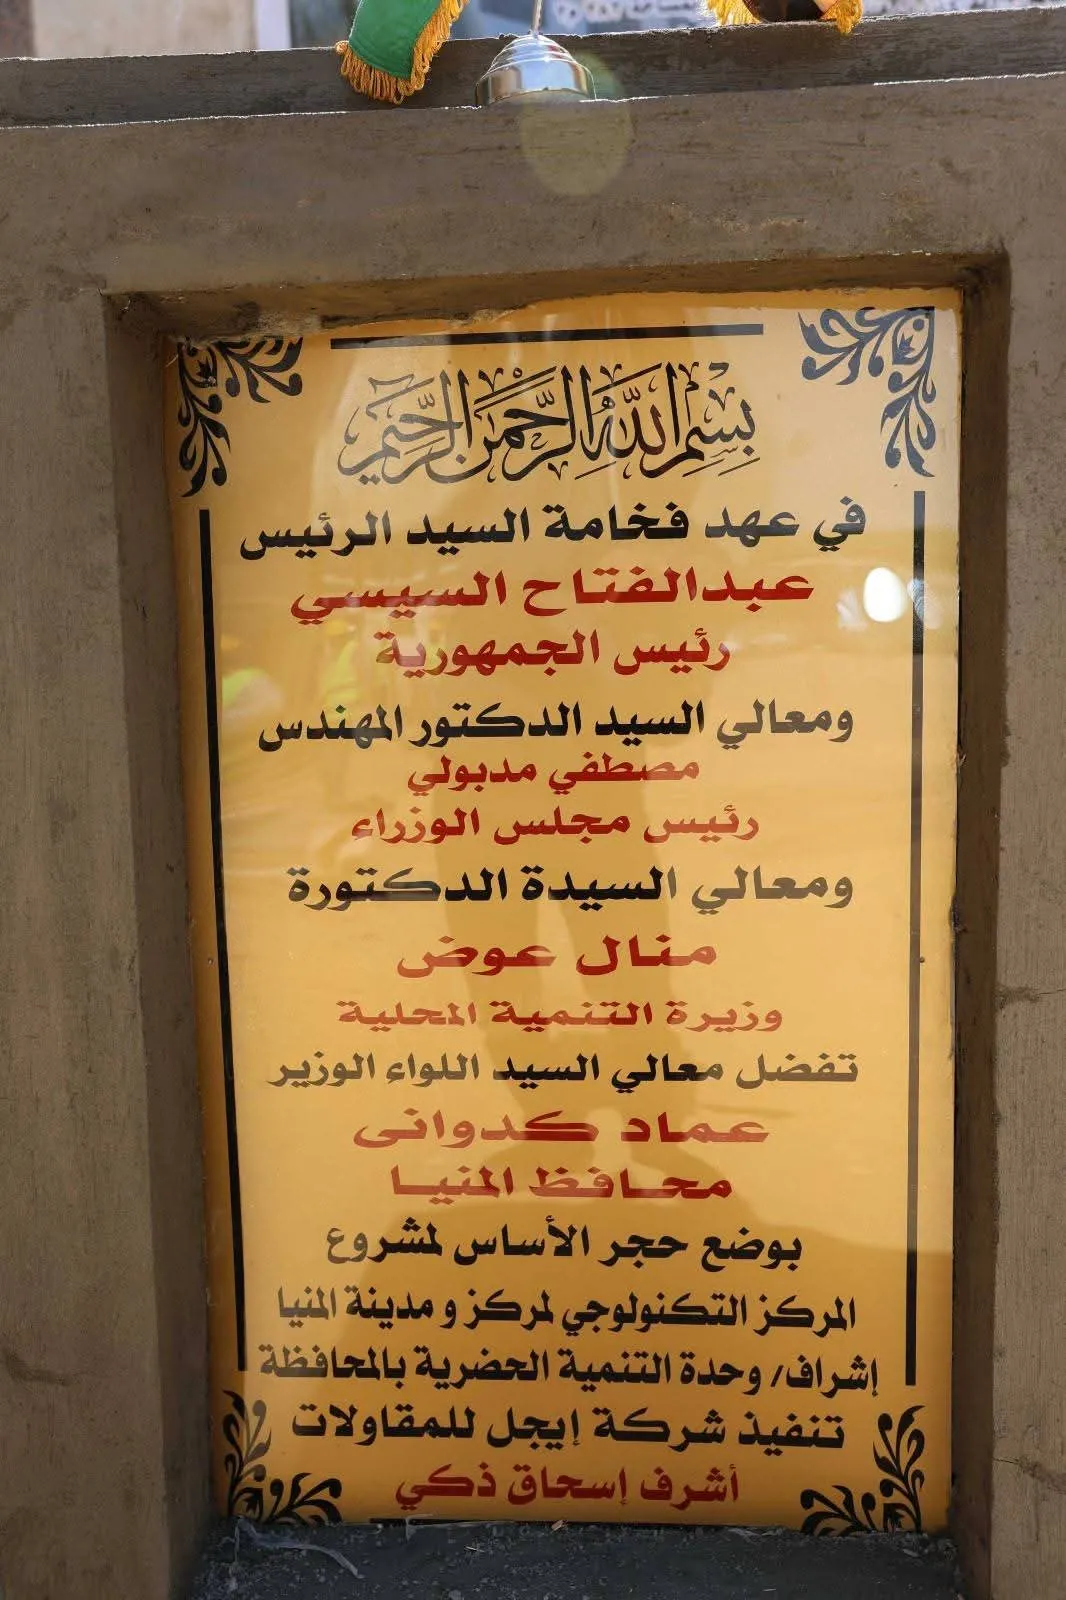 بِسْمِ اللَّهِ الرَّحْمَنِ الرَّحِيمِ
في عهد فخامة السيد الرئيس
عبدالفتاح السيسي
رئيس الجمهورية
ومعالي السيد الدكتور المهندس
مصطفي مدبولي
رئيس مجلس الوزراء
ومعالي السيدة الدكتورة
منال عوض
وزيرة التنمية المحلية
تفضل معالي السيد اللواء الوزير
عماد كدوانى
محافظ المنيا
بوضع حجر الأساس لمشروع
المركز التكنولوجي لمركز و مدينة المنيا
إشراف/ وحدة التنمية الحضرية بالمحافظة
تنفيذ شركة إيجل للمقاولات
أشرف إسحاق ذكي